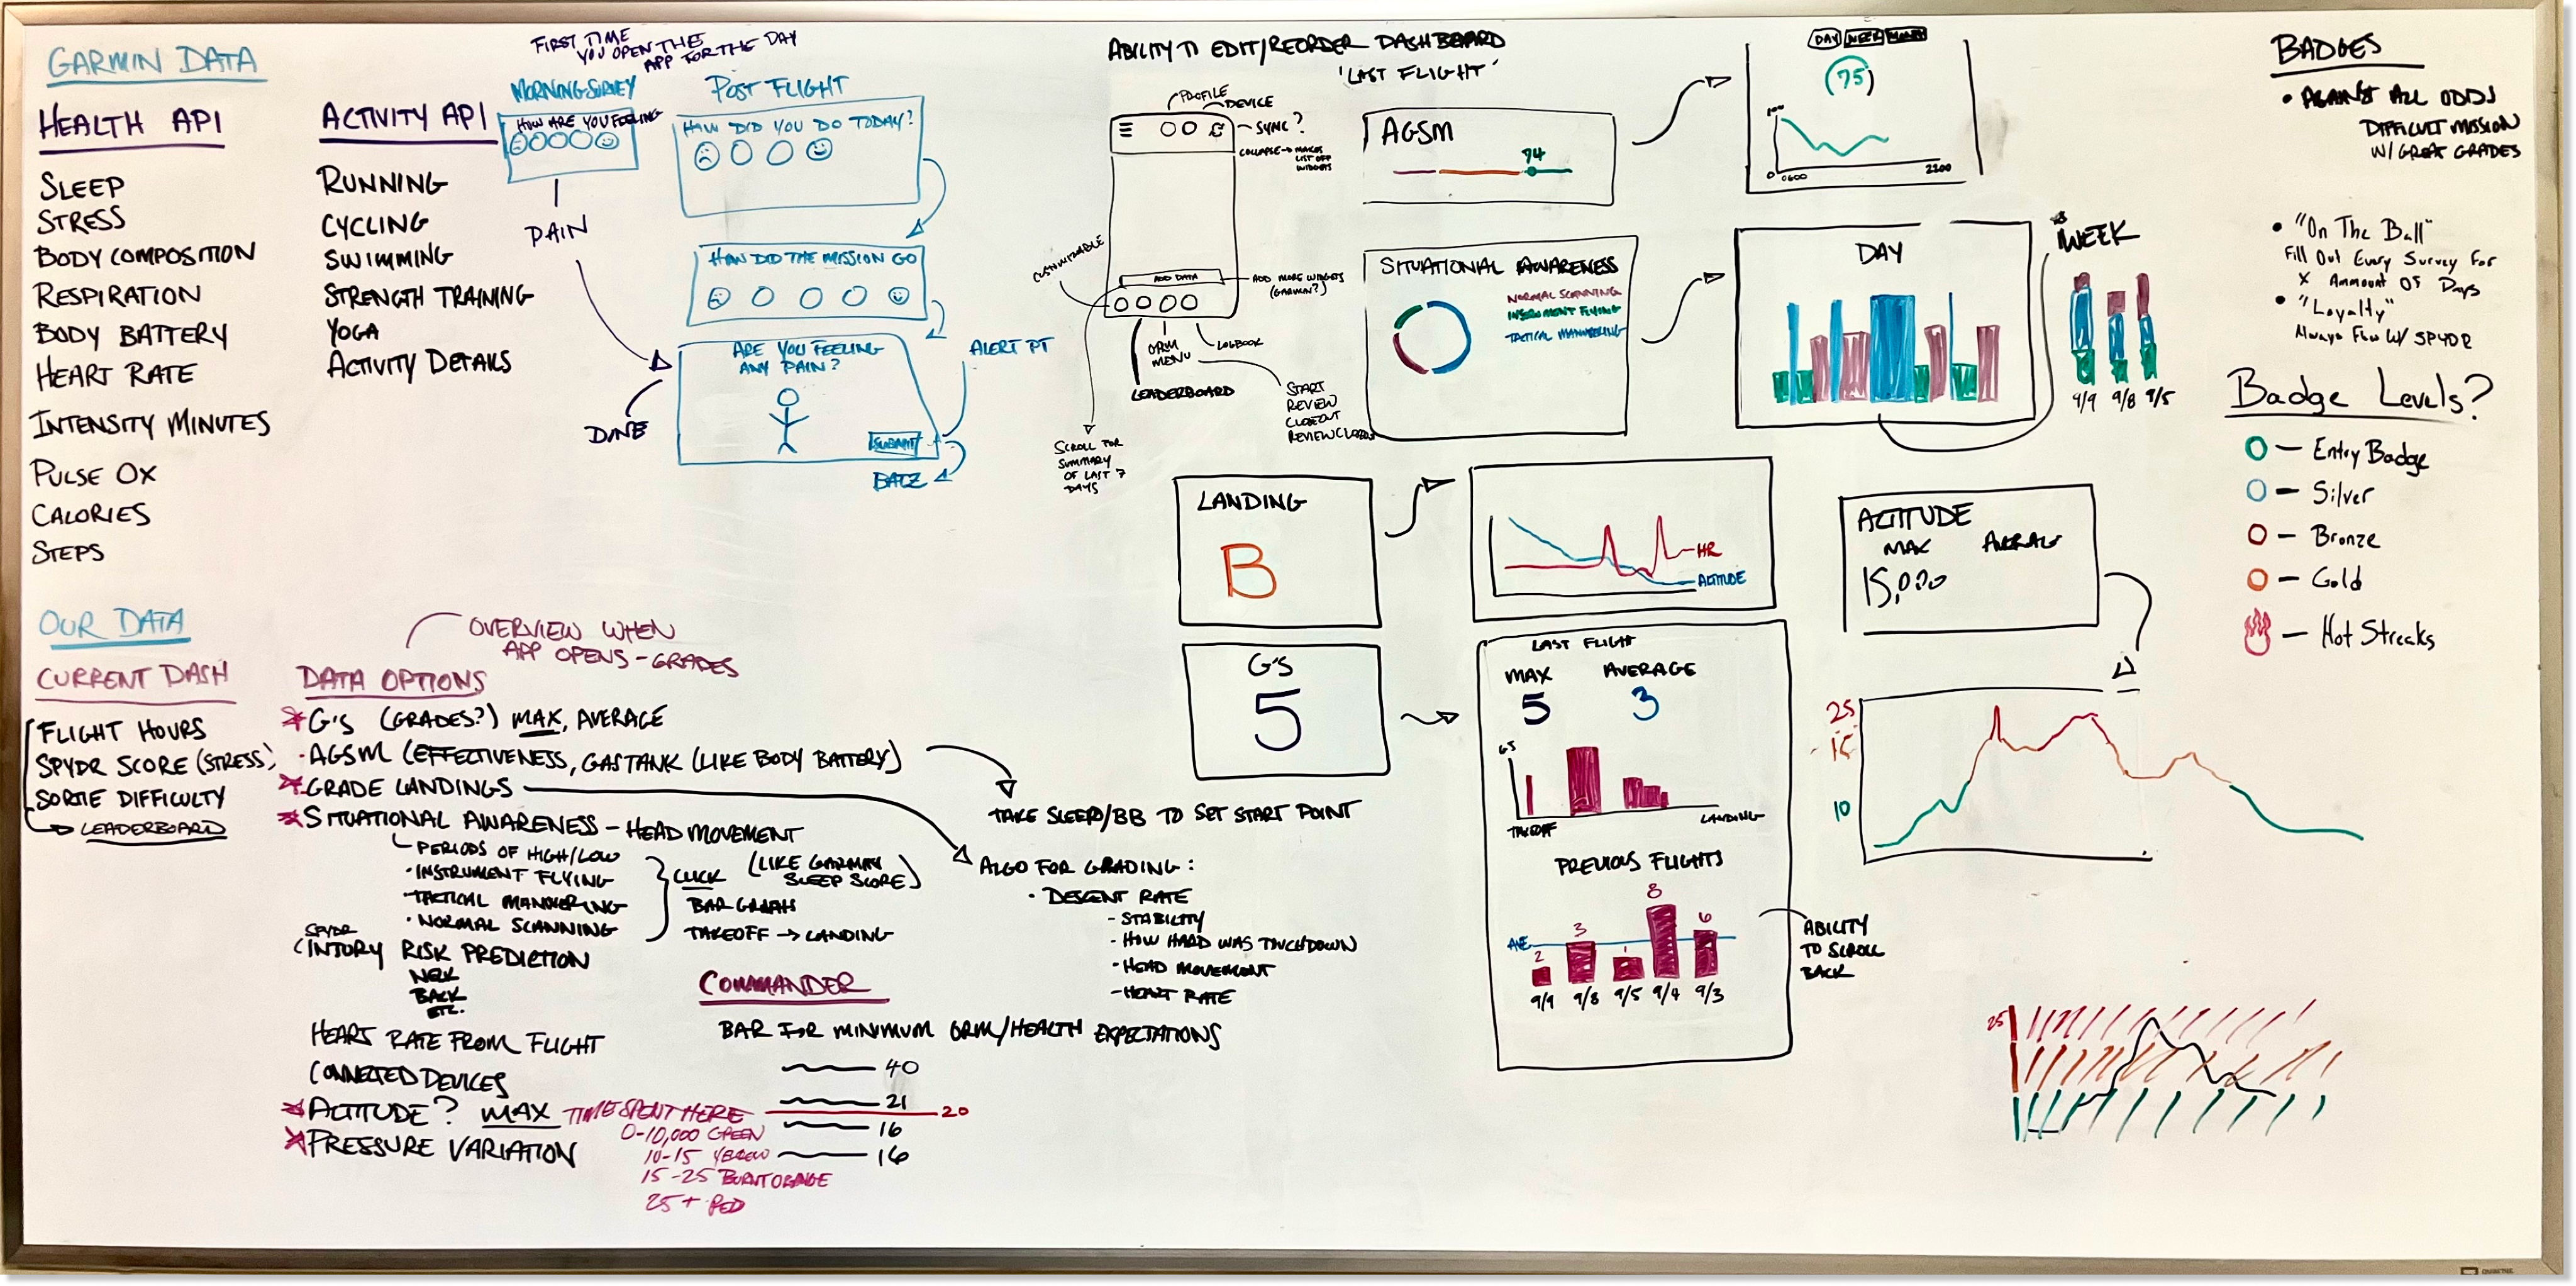 GARMIN DATA
HEALTH API
SLEEP
STRESS
BODY COMPOSITION
RESPIRATION
BODY BATTERY
HEART RATE
INTENSITY MINUTES
PULSE OX
CALORIES
STEPS
ACTIVITY API
RUNNING
CYCLING
SWIMMING
STRENGTH TRAINING
YOGA
ACTIVITY DETAILS
FIRST TIME
YOU OPEN THE
APP FOR THE DAY
MORNING SURVEY
HOW ARE YOU FEELING
PAIN
DONE
POST FLIGHT
HOW DID YOU DO TODAY?
HOW DID THE MISSION GO
ARE YOU FEELING
ANY PAIN?
SUBMIT
ALERT PT
ABILITY TO EDIT/REORDER DASHBOARD
'LAST FLIGHT'
PROFILE
DEVICE
SYNC?
COLLAPSE → MAKES
LIST OFF
WIDGETS
CUSTOMIZABLE
ADD DATA
ADD MORE WIDGETS
(GARMIN?)
ORM
MENU
LOGBOOK
LEADERBOARD
START
REVIEW
CLOSEOUT
REVIEW CLOSEOUT
SCROLL FOR
SUMMARY
OF LAST 7
DAYS
AGSM
94
DAY WEEK MONTH
75
100
0 0600
2200
SITUATIONAL AWARENESS
NORMAL SCANNING
INSTRUMENT FLYING
TACTICAL MANUVERING
DAY
WEEK
9/9 9/8 9/5
LANDING
B
HR
ALTITUDE
G'S
5
LAST FLIGHT
MAX AVERAGE
5 3
G'S
TAKEOFF
LANDING
PREVIOUS FLIGHTS
AVE
2 3 1 8 6
9/9 9/8 9/5 9/4 9/3
ABILITY
TO SCROLL
BACK
ALTITUDE
MAX AVERAGE
15,000
25
15
10
25
BADGES
• AGAINST ALL ODDS
DIFFICULT MISSION
W/ GREAT GRADES
• "On The Ball"
Fill Out Every Survey For
X Ammount Of Days
• "Loyalty"
Always Flew W/ SPYDR
Badge Levels?
O – Entry Badge
O – Silver
O – Bronze
O – Gold
– Hot Streaks
OUR DATA
CURRENT DASH
FLIGHT HOURS
SPYDR SCORE (STRESS)
SORTIE DIFFICULTY
→ LEADERBOARD
OVERVIEW WHEN
APP OPENS - GRADES
DATA OPTIONS
* G'S (GRADES?) MAX, AVERAGE
· AGSM (EFFECTIVENESS, GAS TANK (LIKE BODY BATTERY)
* GRADE LANDINGS
* SITUATIONAL AWARENESS – HEAD MOVEMENT
PERIODS OF HIGH/LOW
· INSTRUMENT FLYING
· TACTICAL MANUVERING
· NORMAL SCANNING
CLICK (LIKE GARMIN
SLEEP SCORE)
BAR GRAPH
TAKEOFF → LANDING
SPYDR
INJURY RISK PREDICTION
NECK
BACK
ETC.
HEART RATE FROM FLIGHT
CONNECTED DEVICES
* ALTITUDE? MAX TIME SPENT HERE
* PRESSURE VARIATION
0-10,000 GREEN
10-15 YELLOW
15-25 BURNT ORANGE
25+ RED
TAKE SLEEP/BB TO SET START POINT
ALGO FOR GRADING:
· DESCENT RATE
- STABILITY
- HOW HARD WAS TOUCHDOWN
· HEAD MOVEMENT
- HEART RATE
COMMANDER
BAR FOR MINIMUM ORM/HEALTH EXPECTATIONS
40
21
20
16
16